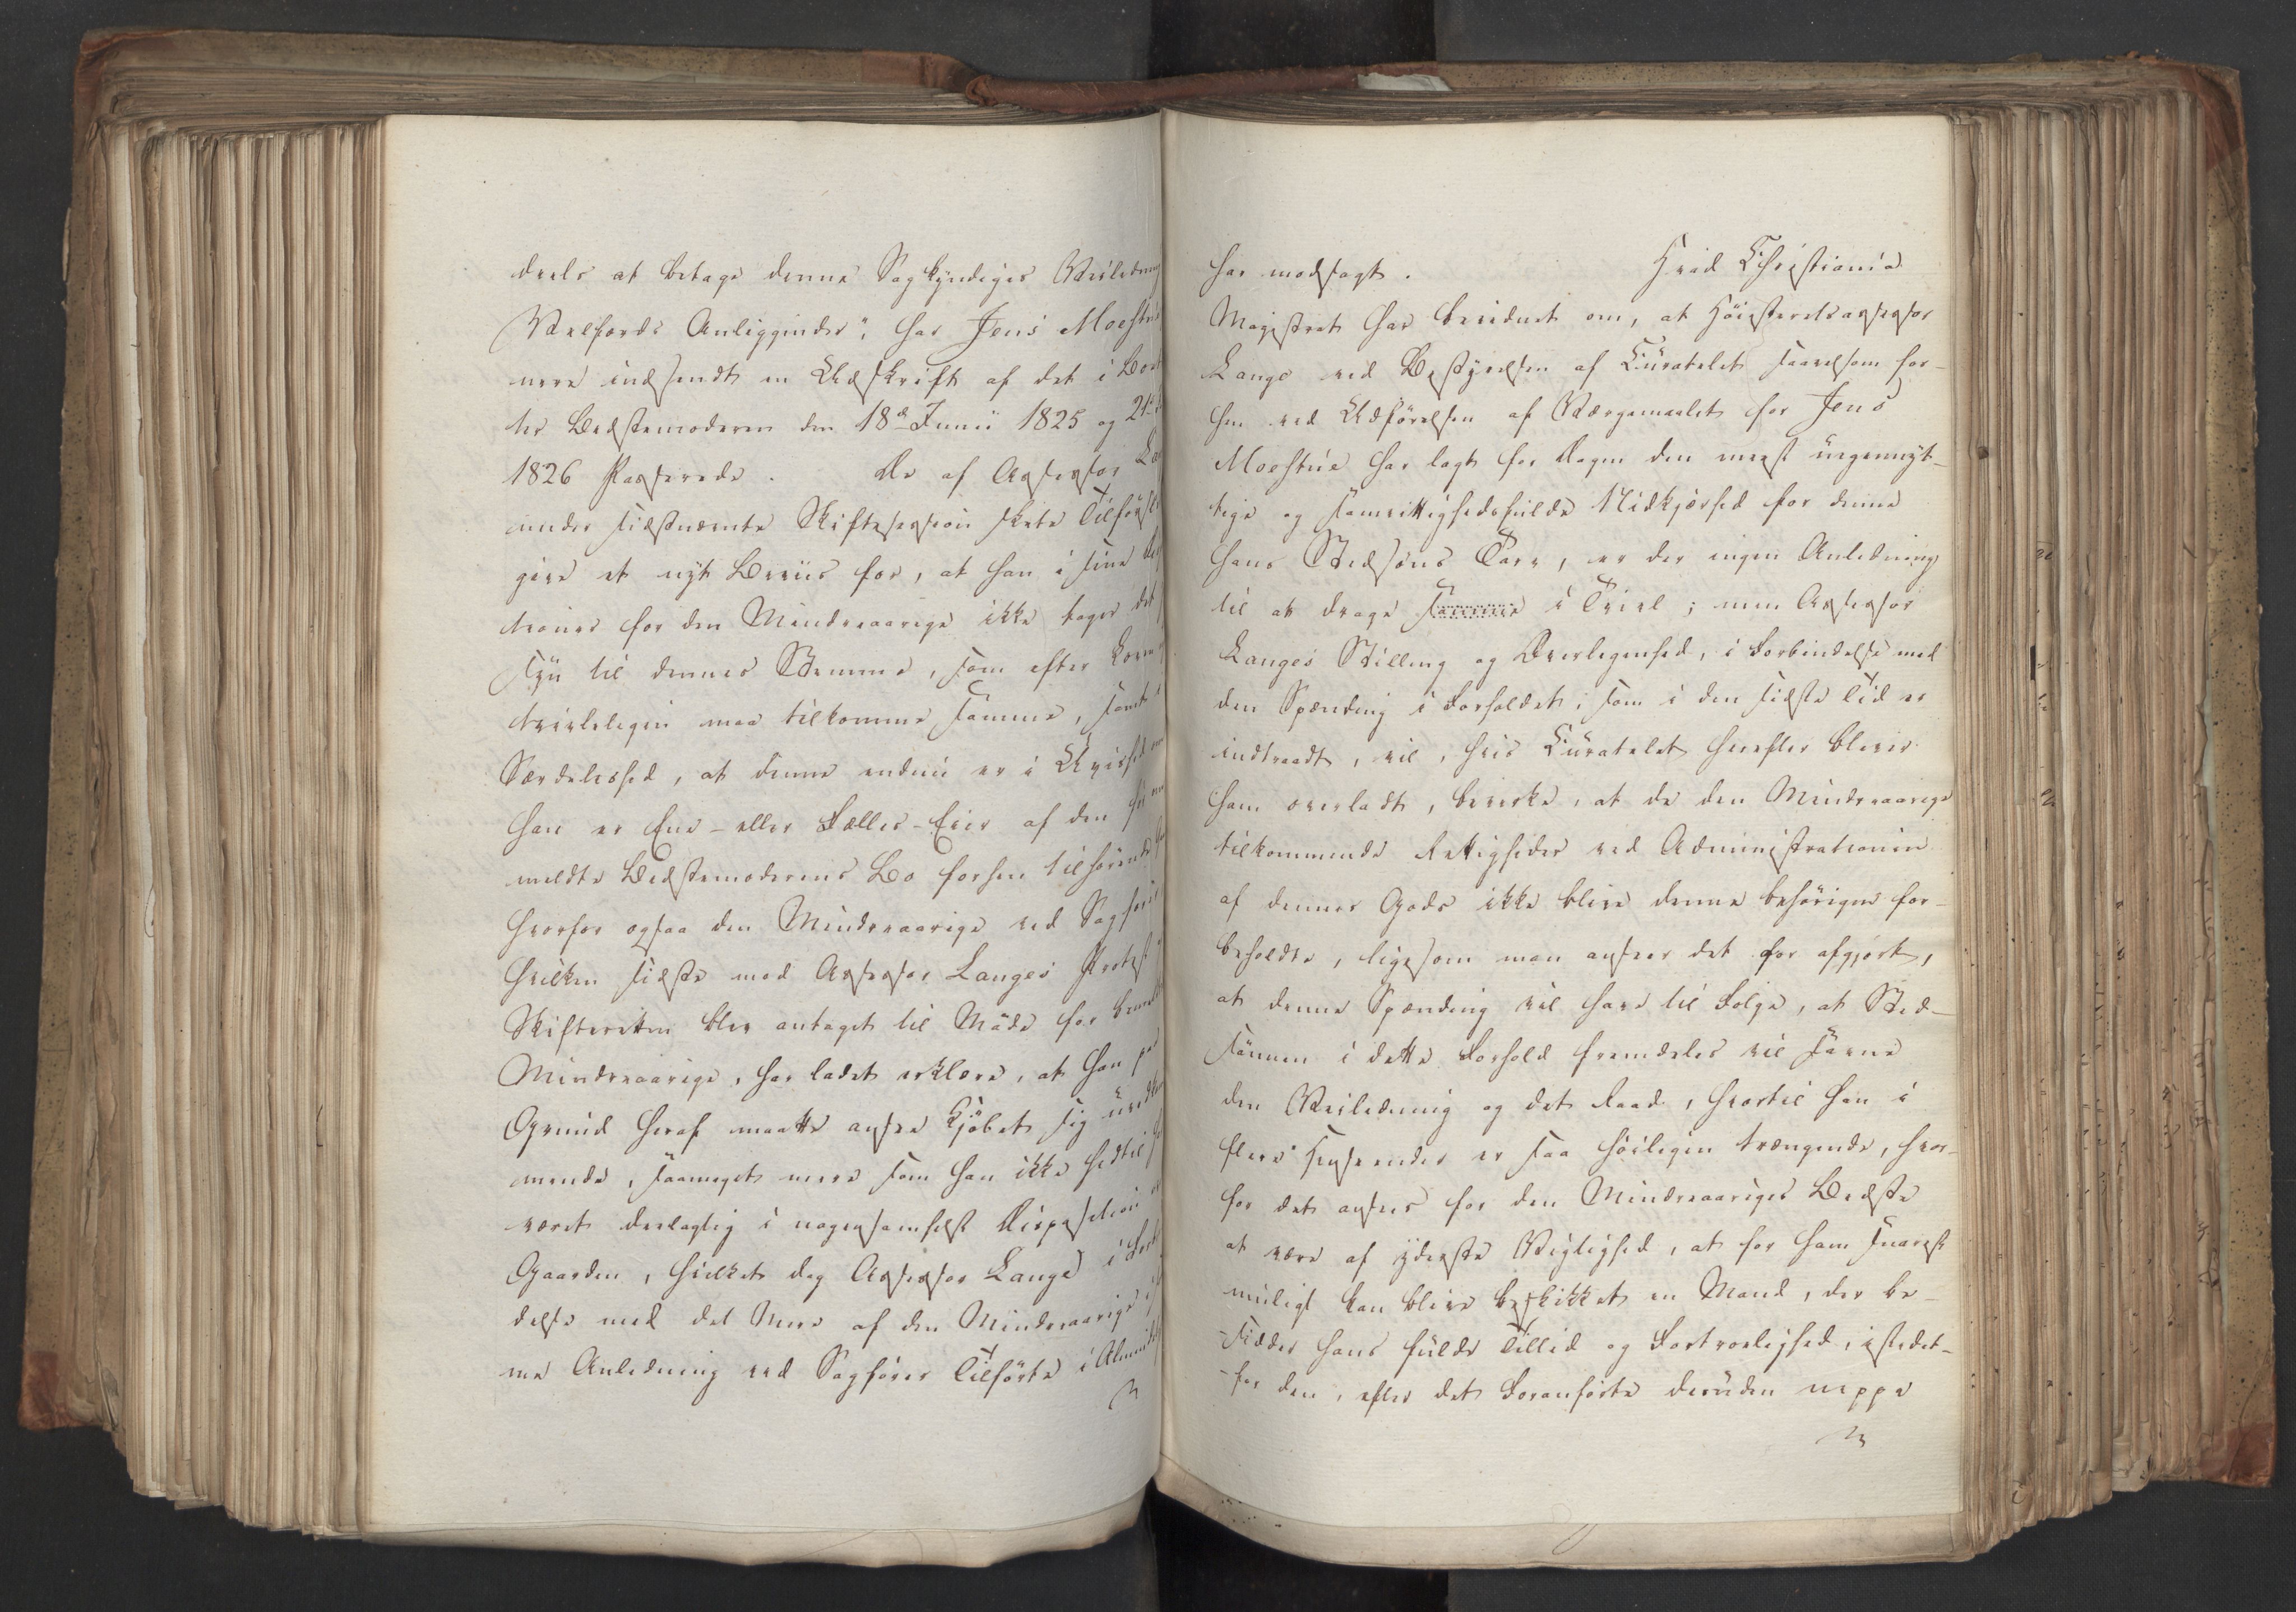 deels at betage denne Sagkyndiges Veiledning
Velfærds Anliggender". har Jens Moestue
mere indsendt en Udskrift af det i Boet
ter Bedstemoderen den 18d Junii 1825 og 21d
1826 Passerede. De af Assessor
under sidstnævnte Skiftesession skete Tilførsler
give et nyt Beviis for, at han i sine
tioner for den Mindreaarige ikke tager det
Syn til dennes Stemme, som efter Loven
tvivleligen maa tilkomme samme, samt
Særdeleshed, at denne endnu er i Uvished om
han er Ene- eller Fælles-Eier af den
meldte Bedstemoderens Bo forhen tilhørende
hvorfor ogsaa den Mindreaarige ved Sagfører
hvilken sidste mod Assessor Langes Protest
Skifteretten blev antaget til Møde for
Mindreaarige, har ladet erklære, at han paa
Grund heraf maatte ansee Kjøbet sig
mende, saameget mere som han ikke hidtil har
været deelagtig i nogensomhelst Disposition
Gaarden, hvilket dog Assessor Lange i
delse med det Mere af den Mindreaarige
me Anledning ved Sagfører Tilførte i
har modsagt. Hvad Christiania
Magistrat har bevidnet om, at Høiesteretsassessor
Lange ved Bestyrelsen af Curatelet saavelsom for-
hen ved Udførelsen af Værgemaalet for Jens
Moestue har lagt for Dagen den meest uegennyt-
tige og samvittighedsfulde Nidkjærhed for denne
hans Stedsøns Tarv, er der ingen Anledning
til at drage samme i Tvivl; men Assessor
Langes Stilling og Overlegenhed, i Forbindelse med
den Spænding i Forholdet, som i den sidste Tid er
indtraadt, vil, hvis Curatelet herefter bliver
ham overladt, bevirke, at de den Mindreaarige
tilkommende Rettigheder ved Administrationen
af dennes Gods ikke blive denne behørigen for-
beholdte, ligesom man anseer det for afgjort,
at denne Spænding vil have til Følge, at Sted-
sønnen i dette Forhold fremdeles vil savne
den Veiledning og det Raad, hvortil han i
flere Henseender er saa høiligen trængende, hvor-
for det ansees for den Mindreaariges Bedste
at være af yderste Vigtighed, at for ham snarest
muligt kan blive beskikket en Mand, der be-
sidder hans fulde Tillid og Fortrolighed, istedet-
for den, efter det Foranførte desuden neppe